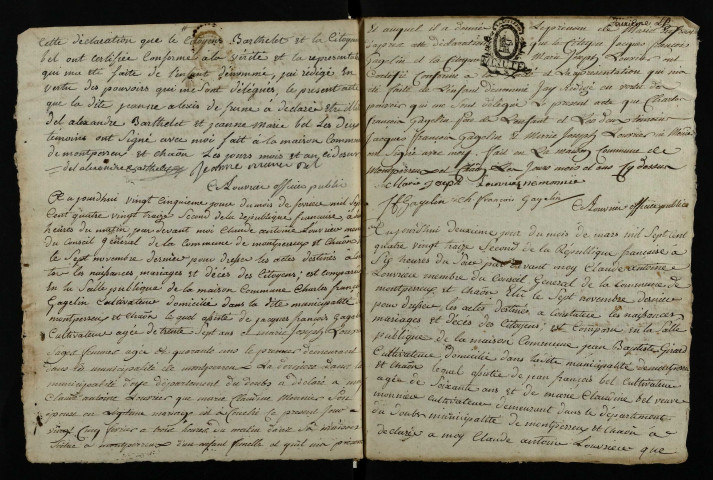 Cette déclaration que le Citoyen Barthelet et la Citoyenne
bel ont certifiée Conforme a la vérité et la représentation
qui ma été faite de l'enfant denommé, jai rédigé En
vertu des pouvoirs qui me sont délégués, le présent acte
que la dite jeanne alexis de june à déclaré
del alexandre Barthelet et jeanne marie bel Les deux
temoins ont Signé avec moi fait à la maison Commune
de montperreux et chaôn Les jours mois et an ci dessus
del alexandre Barthelet jeanne marie bel
C A Louvrier officier public
Ce jourdhui vingt Cinquieme jour du mois de fevrier mil Sept
Cent quatre vingt traize Second de la république française, à
heures du matin par devant moi Claude antoine Louvrier membre
du Conseil général de la Commune de montperreux et chaôn
le Sept novembre dernier pour dresser les actes destinés à
les naissances, mariages et décès des Citoyens; est comparu
en la Salle publique de la maison Commune Charles françois
Gagelin Cultivateur domicilié dans la dite municipalité
montperreux et chaôn le quel assisté de jacques françois Gagelin
Cultivateur agée de trente Sept ans et marie josephe Louvrier
Sages femmes agée de quarante ans le premier demeurant
dans la municipalité de montperreux La derniere dans la
municipalité département du doubs à déclaré à moi
Claude antoine Louvrier que marie Claudine Monnier Son
épouse en Légitime mariage est accouchée le present jour
vingt Cinq fevrier a trois heures du matin dans Sa maison
Située à montperreux d'un enfant femelle et qu'il ma présenté
troisieme
et auquel il a donné Le prénom de Marie
Dapres cette déclaration que le Citoyen Jacques françois
Gagelin et la Citoyenne Marie Joseph Louvrier ont
Certifié Conforme a la vérité et La représentation qui ma
été faite de L'enfant dénommé Jay Rédigé en vertu des
pouvoirs qui me sont Délégués Le présent acte que Charles
françois Gagelin pere de L'enfant et Les deux témoins
Jacques françois Gagelin et Marie Joseph Louvrier
ont Signé avec moy. fait en La maison Commune de
Montperreux et chaôn Les Jours mois et ans cy dessus
Marie joseph Louvrier
J f Gagelin Ch françois Gagelin
C A Louvrier officier public
Aujourdhuy deuxieme jour du mois de mars mil Sept Cent
quatre vingt traize Second de la République francaise a
Six heures du Soir par devant moy Claude Antoine
Louvrier membre du Conseil General de la Commune de
montperreux et chaôn Elu le Sept novembre dernier
pour dresser les actes destinés a Constater les naissances
mariages et décès des Citoyens; est Comparu en la Salle
publique de la maison Commune jean Baptiste Girard
Cultivateur domicilié dans la dite municipalité de montperreux
et chaôn lequel assisté de jean françois bel Cultivateur
agée de Soixante ans et de marie Claudine bel veuve
monnier Cultivateur demeurant dans le département
du doubs municipalité de montperreux et chaôn a
declaré a moy Claude antoine Louvrier que